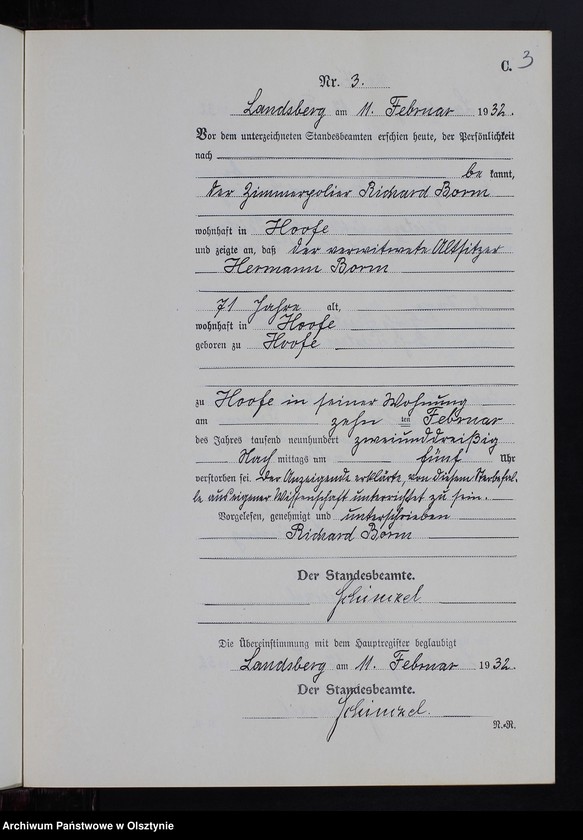 C. 3
Nr. 3.
Landsberg am 11. Februar 1932.
Vor dem unterzeichneten Standesbeamten erschien heute, der Persönlichkeit
nach
be kannt,
der Zimmerpolier Richard Borm
wohnhaft in Hoofe
und zeigte an, daß der verwitwete Altsitzer
Hermann Borm
71 Jahre alt,
wohnhaft in Hoofe
geboren zu Hoofe
zu Hoofe in seiner Wohnung
am zehn ten Februar
des Jahres tausend neunhundert zweiunddreißig
Nach mittags um fünf Uhr
verstorben sei. Der Anzeigende erklärte, von diesem Sterbefal-
le aus eigener Wissenschaft unterrichtet zu sein.
Vorgelesen, genehmigt und unterschrieben
Richard Borm
Der Standesbeamte.
Schimzel
Die Übereinstimmung mit dem Hauptregister beglaubigt
Landsberg am 11. Februar 1932.
Der Standesbeamte.
Schimzel.
N.-R.
Archiwum Państwowe w Olsztynie